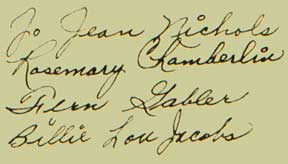 To Jean Nichols
Rosemary Chamberlin
Fern Gabler
Billie Lou Jacobs